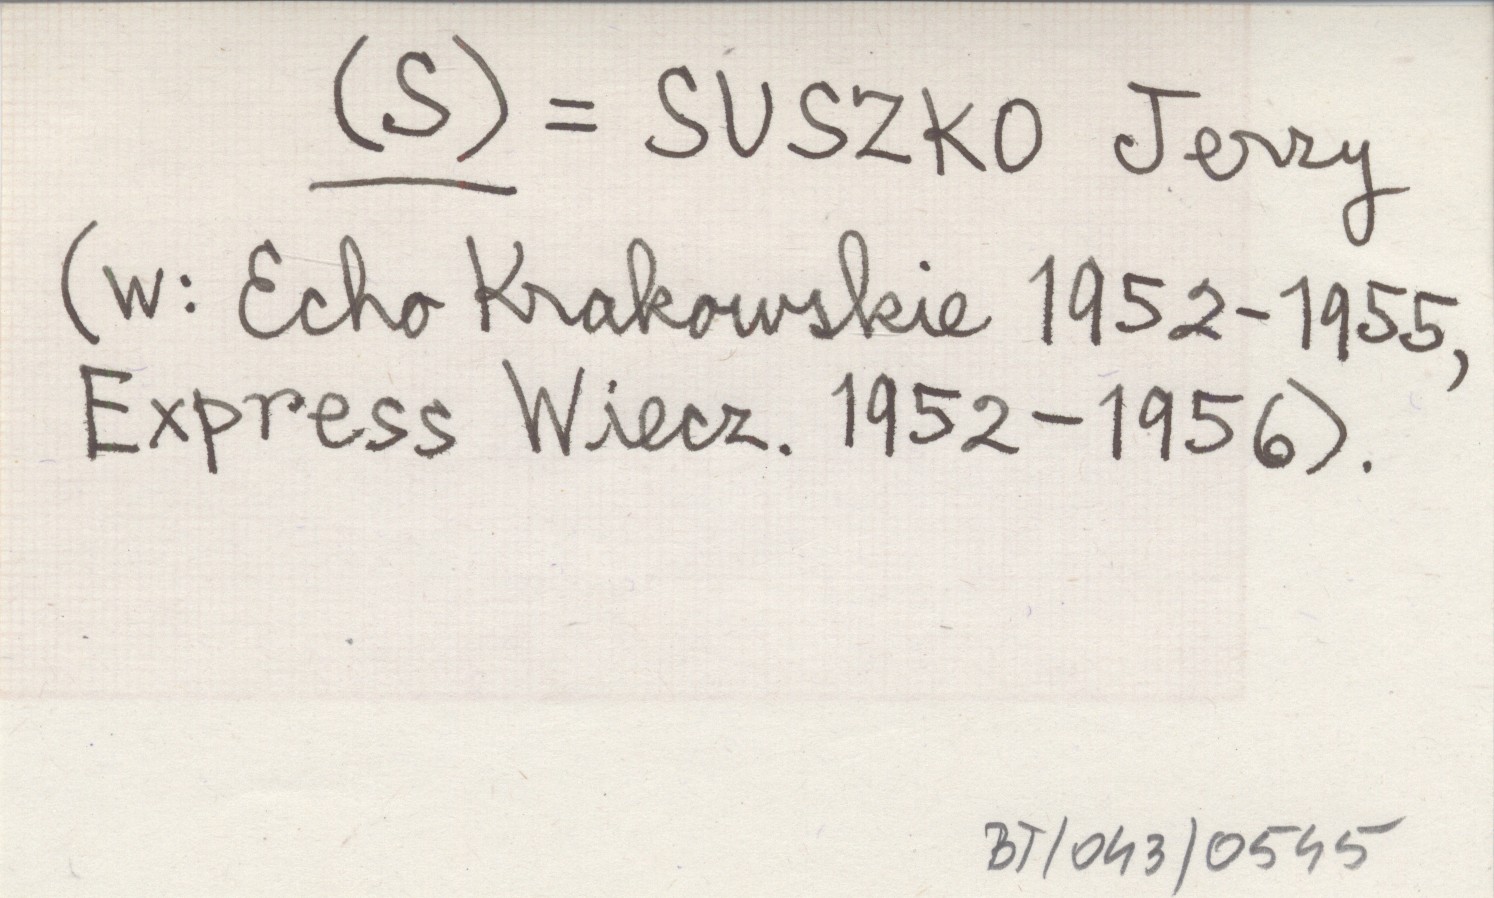 (S) = SUSZKO Jerzy
(w: Echo Krakowskie 1952-1955,
Express Wiecz. 1952-1956).
BT/043/0545